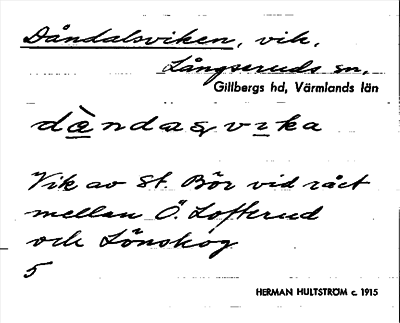 Dåndalsviken, vik,
Långseruds sn,
Gillbergs hd, Värmlands län
dàndasvika
Vik av St. Bör vid rået
mellan Ö. Lofterud
och Lönskog
5
HERMAN HULTSTRÖM c. 1915